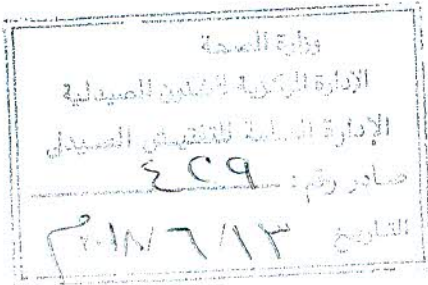 وزارة الصحة
الإدارة المركزية للشئون الصيدلية
الإدارة العامة للتفتيش الصيدلى
صادر رقم : ٤٢٩
التاريخ ٢٠١٨/٦/١٣م